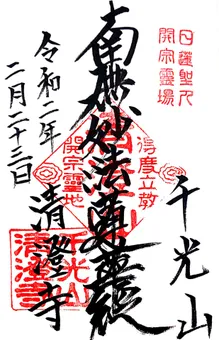 日蓮聖人
開宗霊場
千光山
南無妙法蓮華経
立教
開宗霊地
清澄寺
令和二年
二月二十三日
千光山
清澄寺